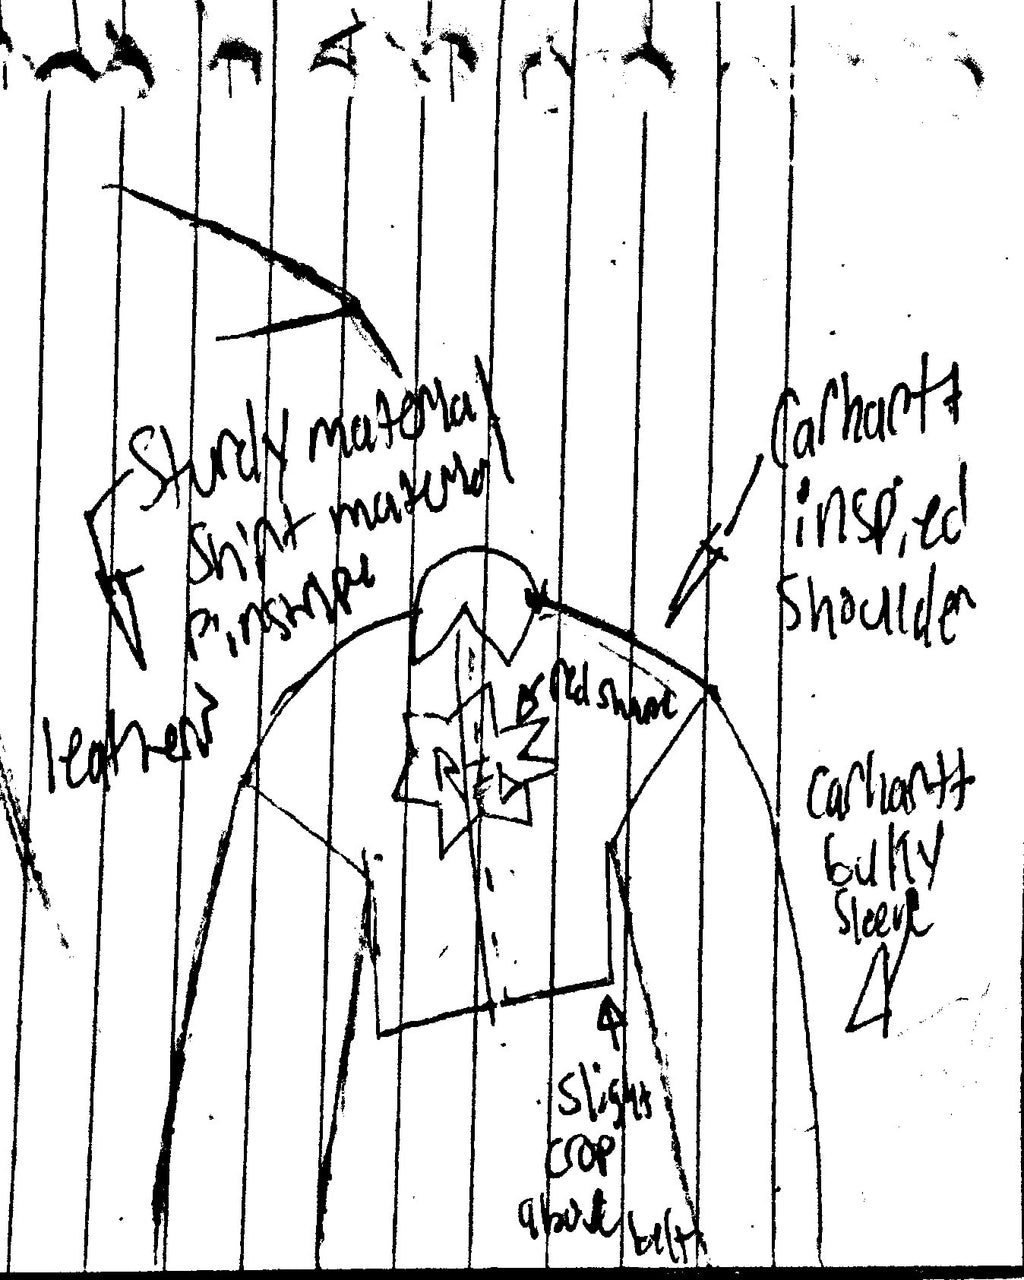 Sturdy material
Shirt material
Pinstripe
leather?
Carhartt
inspired
shoulder
red shape
RED
Carhartt
bulky
sleeve
slight
crop
above belt